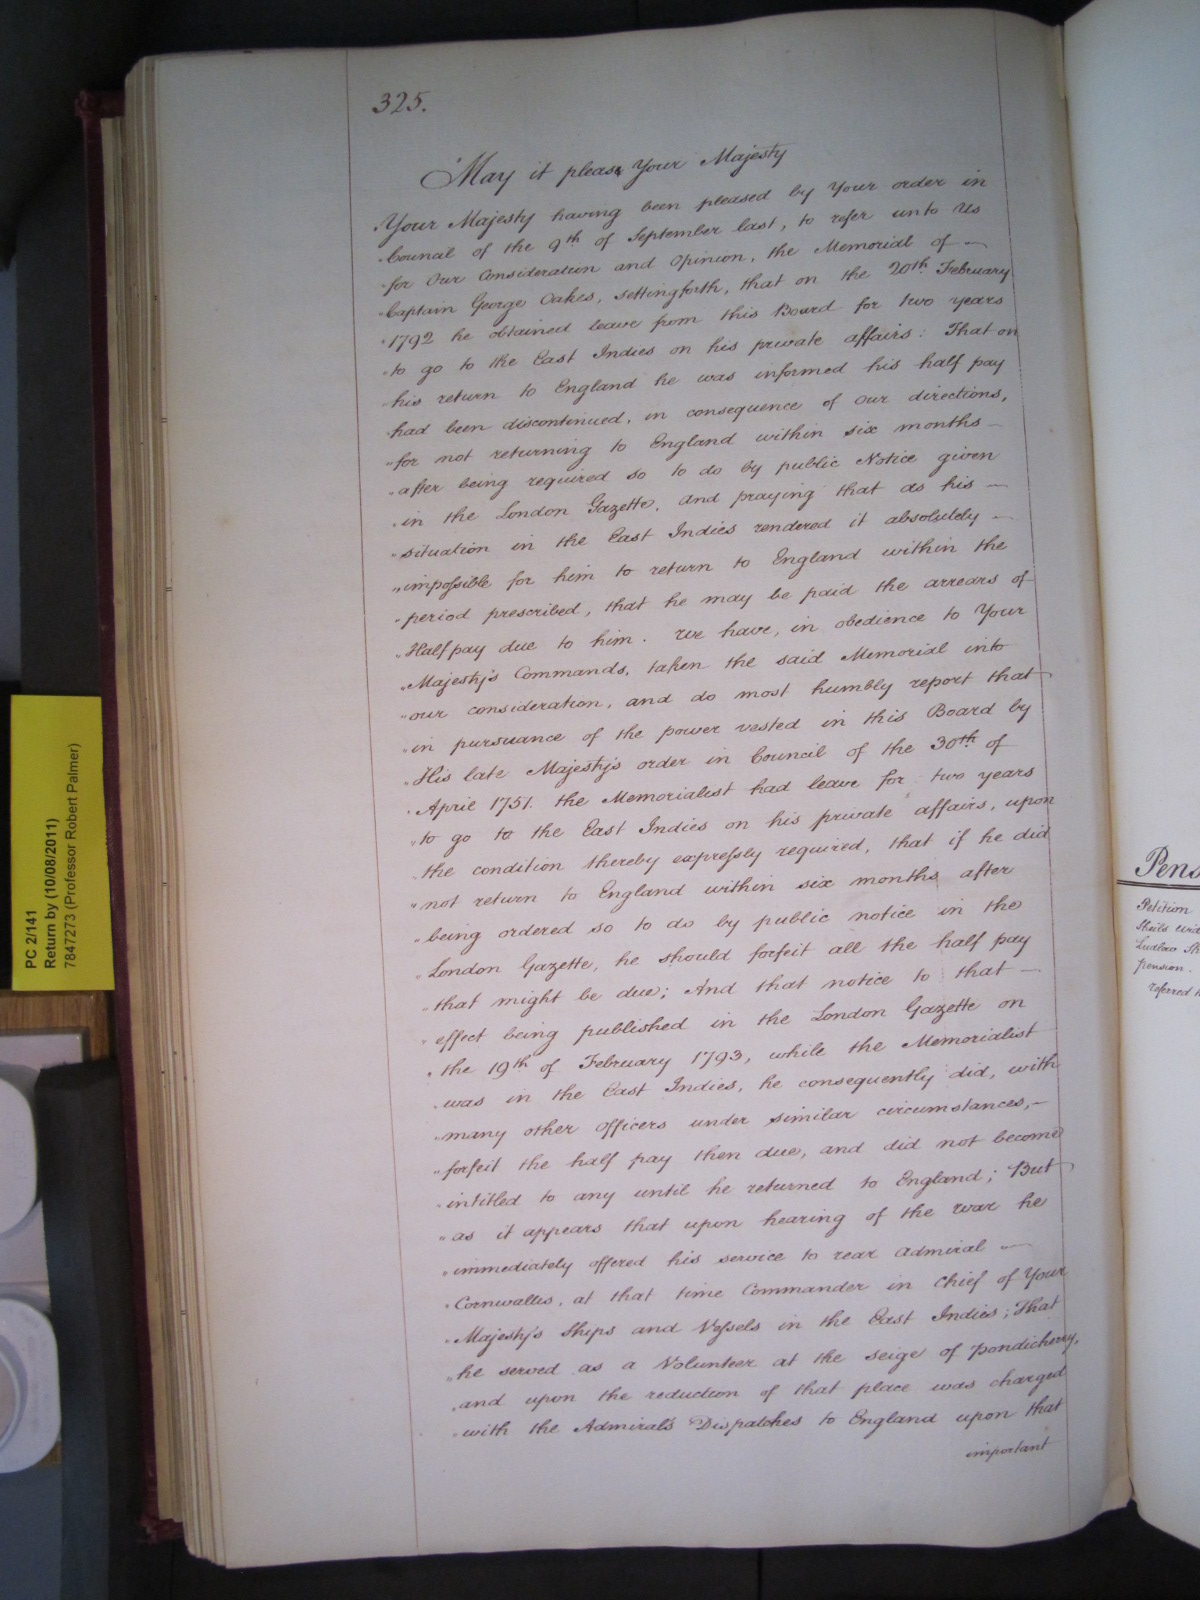 325.
May it please Your Majesty
"Your Majesty having been pleased by Your order in
"Council of the 9th of September last, to refer unto Us
"for Our Consideration and Opinion, the Memorial of —
"Captain George Oakes, settingforth, that on the 20th February
"1792 he obtained leave from this Board for two years
"to go to the East Indies on his private affairs: That on
"his return to England he was informed his half pay
"had been discontinued, in consequence of Our directions,
"for not returning to England within six months —
"after being required so to do by public Notice given
"in the London Gazette, and praying that as his —
"situation in the East Indies rendered it absolutely —
"impossible for him to return to England within the
"period prescribed, that he may be paid the arrears of
"Half pay due to him. We have, in obedience to Your
"Majesty's Commands, taken the said Memorial into
"our consideration, and do most humbly report that
"in pursuance of the power vested in this Board by
"His late Majesty's order in Council of the 30th of
"April 1751. the Memorialist had leave for two years
"to go to the East Indies on his private affairs, upon
"the condition thereby expressly required, that if he did
"not return to England within six months after
"being ordered so to do by public notice in the
"London Gazette, he should forfeit all the half pay
"that might be due; And that notice to that —
"effect being published in the London Gazette on
"the 19th of February 1793, while the Memorialist
"was in the East Indies, he consequently did, with
"many other Officers under similar circumstances, —
"forfeit the half pay then due, and did not become
"intitled to any until he returned to England; But
"as it appears that upon hearing of the war he
"immediately offered his service to rear Admiral —
"Cornwallis, at that time Commander in Chief of Your
"Majesty's Ships and Vessels in the East Indies; That
"he served as a Volunteer at the seige of Pondicherry,
"and upon the reduction of that place was charged
"with the Admiral's Dispatches to England upon that
important
PC 2/141
Return by (10/08/2011)
7847273 (Professor Robert Palmer)
Pens
Petition
Ludlow
pension.
referred